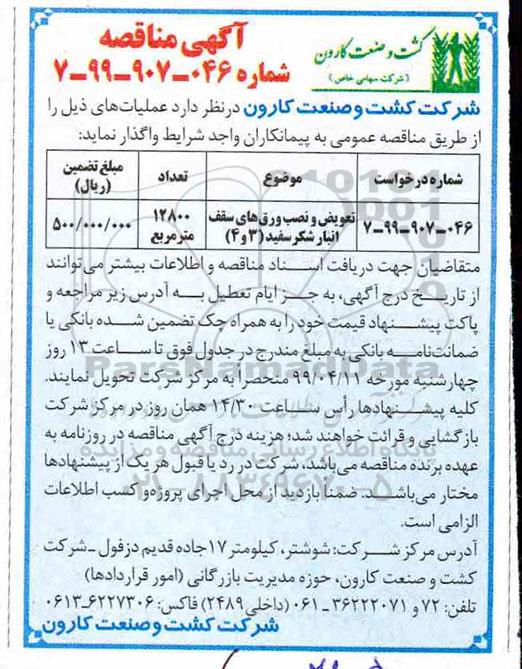 کشت و صنعت کارون
(شرکت سهامی خاص)
آگهی مناقصه
شماره ۰۴۶-۹۰۷-۹۹-۷
شرکت کشت و صنعت کارون در نظر دارد عملیات‌های ذیل را
از طریق مناقصه عمومی به پیمانکاران واجد شرایط واگذار نماید:
شماره درخواست موضوع تعداد مبلغ تضمین (ریال)
۰۴۶-۹۰۷-۹۹-۷ تعویض و نصب ورق‌های سقف انبار شکر سفید (۳ و ۴) ۱۲۸۰۰ مترمربع ۵۰۰/۰۰۰/۰۰۰
متقاضیان جهت دریافت اسناد مناقصه و اطلاعات بیشتر می‌توانند
از تاریخ درج آگهی، به جز ایام تعطیل به آدرس زیر مراجعه و
پاکت پیشنهاد قیمت خود را به همراه چک تضمین شده بانکی یا
ضمانت‌نامه بانکی به مبلغ مندرج در جدول فوق تا ساعت ۱۳ روز
چهارشنبه مورخه ۹۹/۰۴/۱۱ منحصراً به مرکز شرکت تحویل نمایند.
کلیه پیشنهادها رأس ساعت ۱۴/۳۰ همان روز در مرکز شرکت
بازگشایی و قرائت خواهند شد؛ هزینه درج آگهی مناقصه در روزنامه به
عهده برنده مناقصه می‌باشد، شرکت در رد یا قبول هر یک از پیشنهادها
مختار می‌باشد. ضمناً بازدید از محل اجرای پروژه و کسب اطلاعات
الزامی است.
آدرس مرکز شرکت: شوشتر، کیلومتر ۱۷ جاده قدیم دزفول - شرکت
کشت و صنعت کارون، حوزه مدیریت بازرگانی (امور قراردادها)
تلفن: ۷۲ و ۳۶۲۲۲۰۷۱-۰۶۱ (داخلی ۲۴۸۹) فاکس: ۶۲۲۷۳۰۶-۰۶۱۳
شرکت کشت و صنعت کارون
ParsNamadData
پایگاه اطلاع رسانی مناقصه و مزایده
۰۲۱-۸۸۳۴۹۶۷۰-۵